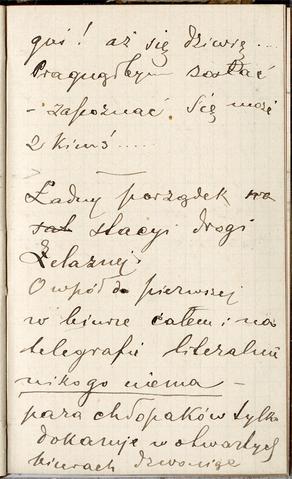 guś! aż się dziwię....
Pragnąłbym zostać
- zapoznać się może
z kimś.....
Ładny porządek na
stacyi drogi
Żelaznej.
O wpół do pierwszej
w biurze całem i na
telegrafie literalnie
nikogo niema -
para chłopaków tylko
dokazuje w otwartych
biurach dzwoniąc